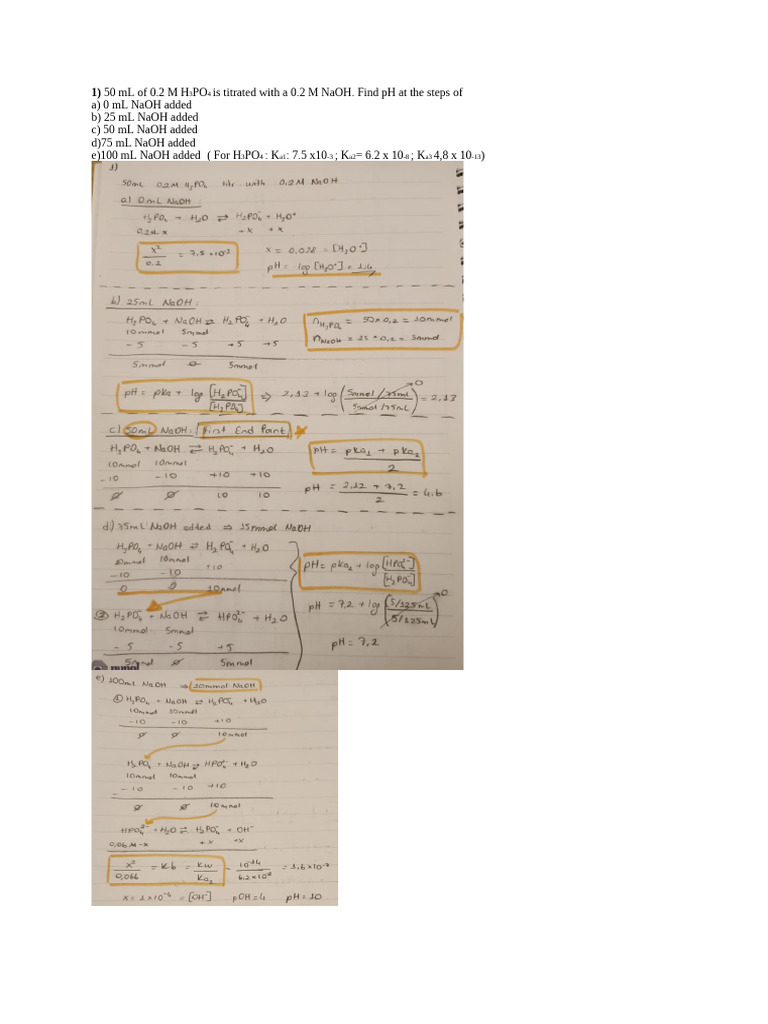 1) 50 mL of 0.2 M H₃PO₄ is titrated with a 0.2 M NaOH. Find pH at the steps of
a) 0 mL NaOH added
b) 25 mL NaOH added
c) 50 mL NaOH added
d)75 mL NaOH added
e)100 mL NaOH added ( For H₃PO₄ : Kₐ₁: 7.5 x10₋₃ ; Kₐ₂= 6.2 x 10₋₈ ; Kₐ₃ 4,8 x 10₋₁₃)
1)
50mL 0.2M H₃PO₄ titr. with 0.2M NaOH
a) 0mL NaOH :
H₃PO₄ + H₂O ⇌ H₂PO₄⁻ + H₃O⁺
0.2M-x +x +x
x²/0.2 = 7.5 *10⁻³
x = 0,038 = [H₃O⁺]
pH = -log [H₃O⁺] = 1.4
b) 25mL NaOH :
H₃PO₄ + NaOH ⇌ H₂PO₄⁻ + H₂O
10mmol 5mmol
-5 -5 +5 +5
5mmol ∅ 5mmol
n H₃PO₄ = 50*0,2 = 10mmol
n NaOH = 25 * 0,2 = 5mmol
pH = pka + log [H₂PO₄⁻]/[H₃PO₄] ⇒ 2,12 + log (5mmol /75mL / 5mmol /75mL) 0 = 2,13
c) 50mL NaOH : First End Point
H₃PO₄ + NaOH ⇌ H₂PO₄⁻ + H₂O
10mmol 10mmol
-10 -10 +10 +10
∅ ∅ 10 10
pH = pka₁ + pka₂ / 2
pH = 2,12 + 7,2 / 2 = 4.6
d) 75mL NaOH added ⇒ 15mmol NaOH
H₃PO₄ + NaOH ⇌ H₂PO₄⁻ + H₂O
10mmol 10mmol +10
-10 -10
0 0 10mmol
② H₂PO₄⁻ + NaOH ⇌ HPO₄²⁻ + H₂O
10mmol 5mmol
-5 -5 +5
5mmol ∅ 5mmol
pH = pka₂ + log [HPO₄²⁻]/[H₂PO₄⁻]
pH = 7,2 + log (5/125mL / 5/125mL) 0
pH = 7,2
e) 100mL NaOH ⇒ 20mmol NaOH
① H₃PO₄ + NaOH ⇌ H₂PO₄⁻ + H₂O
10mmol 10mmol
-10 -10 +10
∅ ∅ 10mmol
H₂PO₄⁻ + NaOH ⇌ HPO₄²⁻ + H₂O
10mmol 10mmol
-10 -10 +10
∅ ∅ 10mmol
HPO₄²⁻ + H₂O ⇌ H₂PO₄⁻ + OH⁻
0,06M-x +x +x
x²/0,066 = Kb = Kw/Ka₂ = 10⁻¹⁴/6.2×10⁻⁸ = 1,6×10⁻⁷
x = 1×10⁻⁴ = [OH⁻] pOH = 4 pH = 10